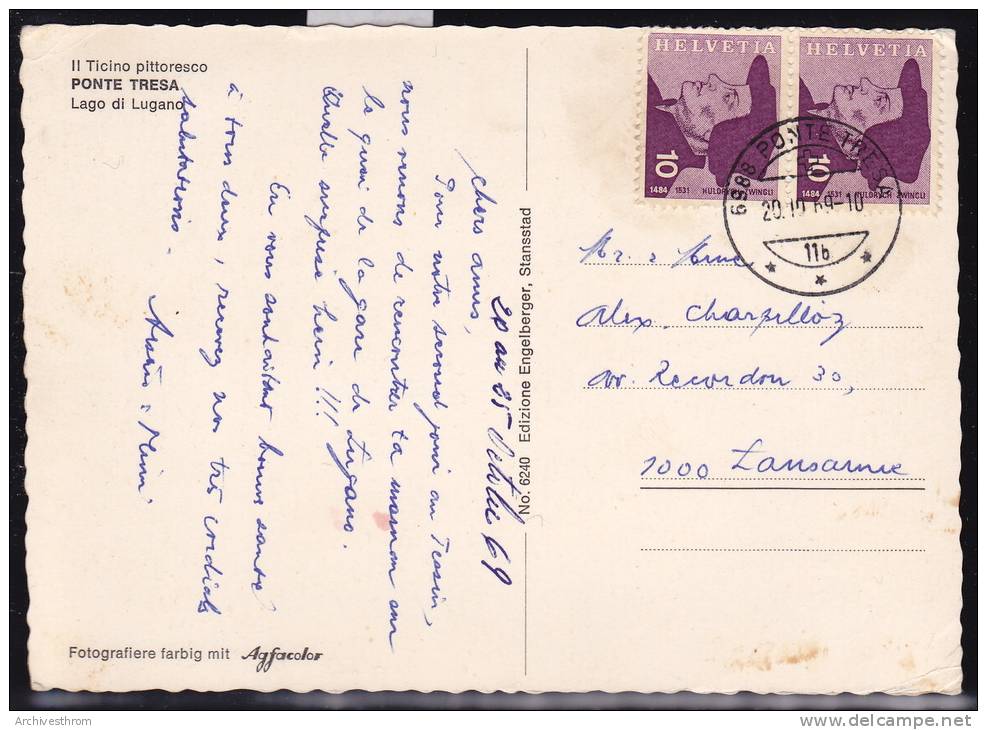 Il Ticino pittoresco
PONTE TRESA
Lago di Lugano
20 au 25 Octobre 69
Chers amis,
Pour notre second jour au Tessin,
nous venons de rencontrer ta maman sur
le quai de la gare de Lugano.
Quelle surprise hein !!!
En vous souhaitant bonne santé
à tous deux, recevez nos très cordiales
salutations.
Mimi
No. 6240 Edizione Engelberger, Stansstad
Fotografiere farbig mit Agfacolor
HELVETIA
10
1484 1531 HULDRYCH ZWINGLI
HELVETIA
10
1484 1531 HULDRYCH ZWINGLI
6988 PONTE TRESA
20.10.69-10
11b
Mr. & Mme
Alex. Charpilloz
av. Recordon 30,
1000 Lausanne
Archivesthrom
www.delcampe.net